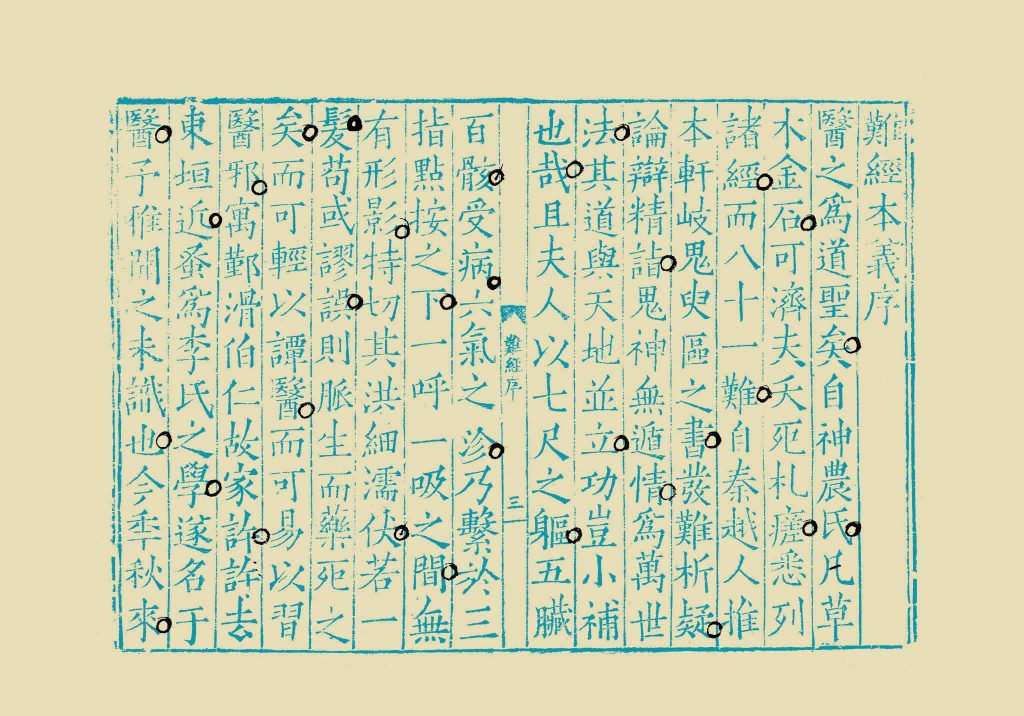 難經本義序
醫之爲道聖矣自神農氏凡草
木金石可濟夫夭死札瘥悉列
諸經而八十一難自秦越人推
本軒岐鬼臾區之書發難析疑
論辯精詣鬼神無遁情爲萬世
法其道與天地並立功豈小補
也哉且夫人以七尺之軀五臟
難經序
三
百骸受病六氣之沴乃繫於三
指點按之下一呼一吸之間無
有形影特切其洪細濡伏若一
髮苟或謬誤則脈生而藥死之
矣而可輕以譚醫而可易以習
醫邪寓鄞滑伯仁故家許許去
東垣近蚤爲李氏之學遂名于
醫予雅聞之未識也今年秋來